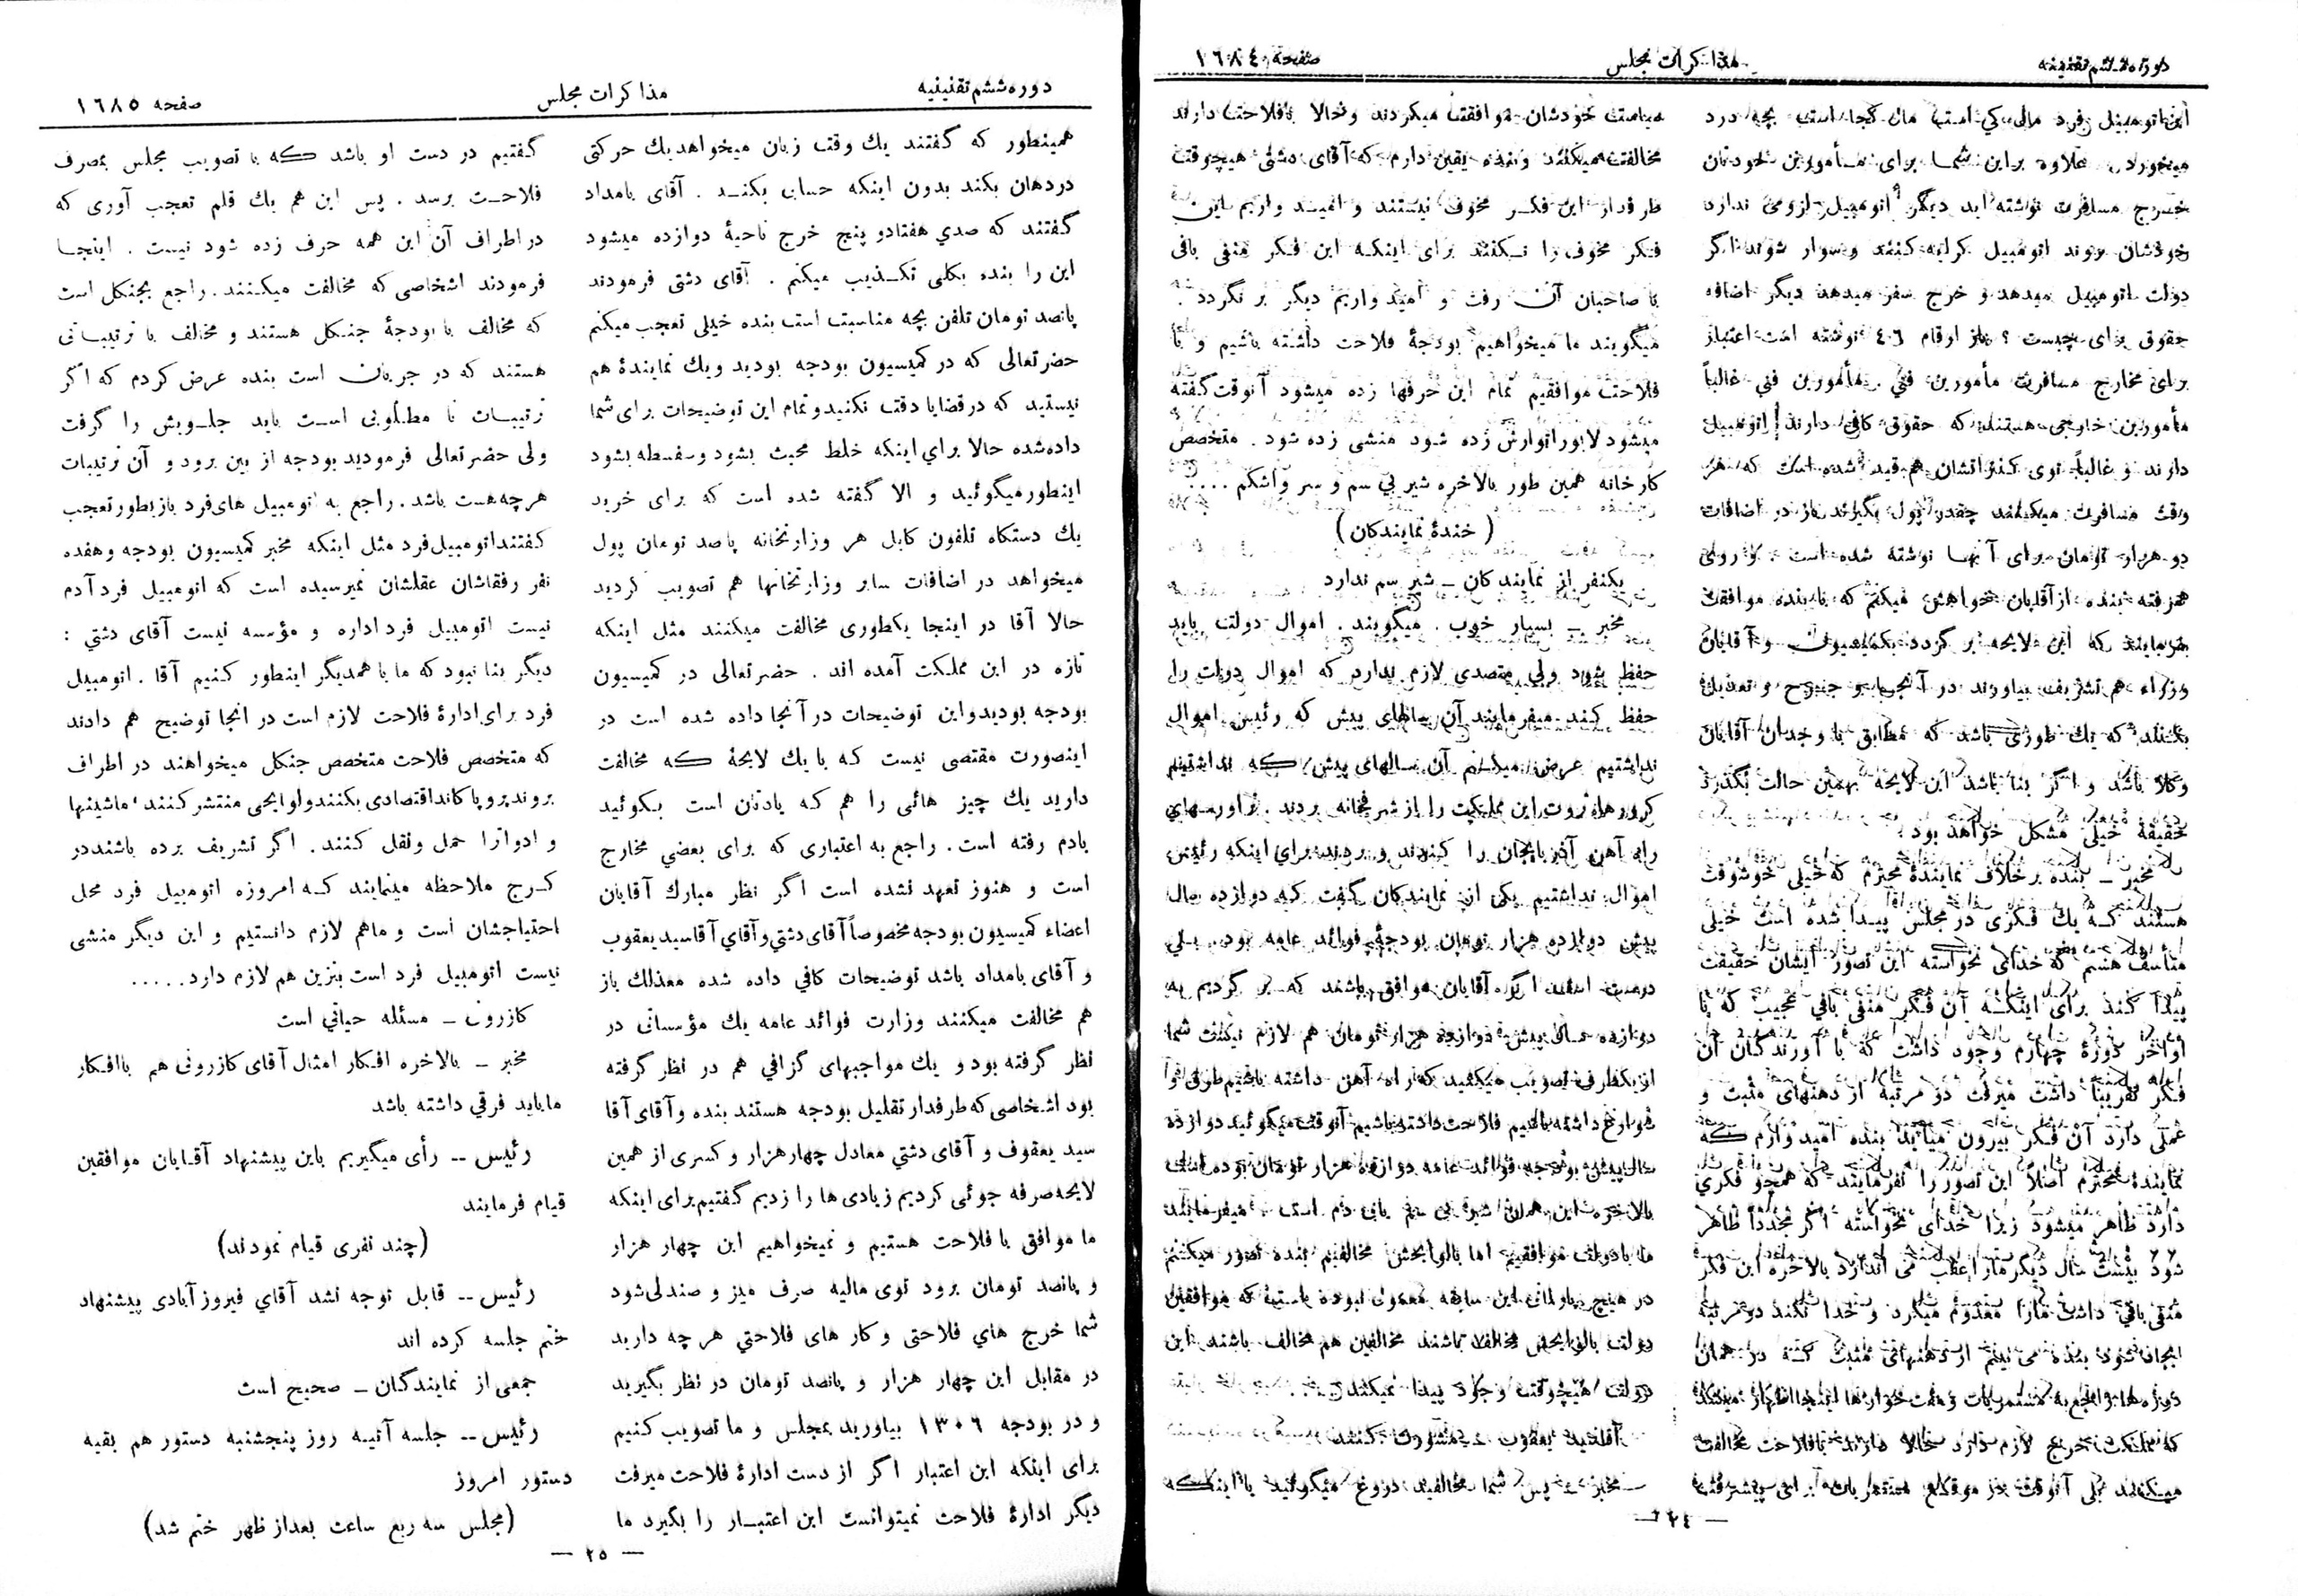 دوره ششم تقنینیه
مذاکرات مجلس
صفحه ١٦٨٤
این اتومبیل فرد مال کی است مال کجا است بچه درد
میخورد. علاوه براین شما برای مأمورین خودتان
خرج مسافرت نوشته اید دیگر اتومبیل لزومی ندارد
خودشان بروند اتومبیل کرایه کنند و سوار شوند اگر
دولت اتومبیل میدهد و خرج سفر میدهد دیگر اضافه
حقوق برای چیست ؟ باز ارقام ٤٠٦ نوشته است اعتبار
برای مخارج مسافرت مأمورین فنی. مأمورین فنی غالباً
مأمورین خارجی هستند که حقوق کافی دارند اتومبیل
دارند و غالباً توی کنتراتشان هم قید شده است که هر
وقت مسافرت میکنند چقدر پول بگیرند باز در اضافات
دو هزار تومان برای آنها نوشته شده است.
بنده از آقایان خواهش میکنم که با بنده موافقت
بفرمایند که این لایحه بر گردد بکمیسیون و آقایان
وزراء هم تشریف بیاورند در آنجا و جرح و تعدیل
بکنند که یك طوری باشد که مطابق با وجدان آقایان
وکلا باشد و اگر بنا باشد این لایحه بهمین حالت بگذرد
حقیقة خیلی مشکل خواهد بود
مخبر ــ بنده برخلاف نمایندۀ محترم که خیلی خوشوقت
هستند که یك فکری در مجلس پیدا شده است خیلی
متأسف هستم که خدای نخواسته این تصور ایشان حقیقت
پیدا کند برای اینکه آن فکر منفی بافی عجیب که با
اواخر دورۀ چهارم وجود داشت که با آورندگان آن
فکر تقریباً داشت میرفت دو مرتبه از دهنهای مثبت و
عملی دارد آن فکر بیرون میاید بنده امید وارم که
نمایندۀ محترم اصلا این تصور را نفرمایند که همچو فکری
دارد ظاهر میشود زیرا خدای نخواسته اگر مجدداً ظاهر
شود بیست سال دیگر مارا عقب می اندازد بالاخره این فکر
منفی بافی داشت مارا معدوم میکرد و خدا نکند دو مرتبه
ایجاد شود بنده می بینم از دهنهائی مثبت که در همان
دوره ها راجع به مستمریات و مفت خوارها اینجا اظهار میشد
که مملکت خرج لازم دارد حالا دارند با فلاحت مخالفت
میکنند بلی آنوقت در موقع
میبایست خودشان موافقت میکردند و حالا با فلاحت دارند
مخالفت میکنند و بنده یقین دارم که آقای دشتی هیچوقت
طرفدار این فکر مخوف نیستند و امید واریم این
فکر مخوف را نکنند برای اینکه این فکر منفی بافی
با صاحبان آن رفت و امید واریم دیگر بر نگردد.
میگویند ما میخواهیم بودجۀ فلاحت داشته باشیم و با
فلاحت موافقیم تمام این حرفها زده میشود آنوقت گفته
میشود لابوراتوارش زده شود منشی زده شود. متخصص
کارخانه همین طور بالاخره شیر بی سم و سر و اشکم ....
( خندۀ نمایندگان )
یکنفر از نمایندگان ــ شیر سم ندارد
مخبر ــ بسیار خوب. میگویند. اموال دولت باید
حفظ شود ولی متصدی لازم ندارد که اموال دولت را
حفظ کند میفرمایند آن سالهای پیش که رئیس اموال
نداشتیم عرض میکنم آن سالهای پیش که نداشتیم
کرورها ثروت این مملکت را از شرفخانه بردند.
راه آهن آذربایجان را کندند و بردند برای اینکه رئیس
اموال نداشتیم یکی از نمایندگان گفت که دوازده سال
پیش دوازده هزار تومان بودجۀ فوائد عامه بود. بلی
درست است اگر آقایان موافق باشند که بر گردیم به
دوازده سال پیش دوازده هزار تومان هم لازم نیست شما
از یکطرف تصویب میکنید که راه آهن داشته باشیم طرق و
شوارع داشته باشیم فلاحت داشته باشیم آنوقت میگوئید دوازده
سال پیش بودجه فوائد عامه دوازده هزار تومان بوده است
بالاخره این همان شیر بی سم یا بی دم است. میفرمایند
ما با دولت موافقیم اما با لوایحش مخالفیم بنده تصور میکنم
در هیچ پارلمانی این سابقه معمول نبوده است که موافقین
دولت با لوایحش مخالف باشند مخالفین هم مخالف باشند این
دولت هیچوقت وجود پیدا نمیکند
آقا سید یعقوب ــ مشورت کنند
مخبر ــ پس شما مخالفید دروغ میگوئید با اینکه
ــ ٢٤ ــ
دوره ششم تقنینیه
مذاکرات مجلس
صفحه ١٦٨٥
همینطور که گفتند یك وقت زبان میخواهد یك حرکتی
در دهان بکند بدون اینکه حسابی بکند. آقای بامداد
گفتند که صدی هفتاد و پنج خرج ناحیۀ دوازده میشود
این را بنده بکلی تکذیب میکنم. آقای دشتی فرمودند
پانصد تومان تلفن بچه مناسبت است بنده خیلی تعجب میکنم
حضرتعالی که در کمیسیون بودجه بودید و یك نمایندۀ هم
نیستید که در قضایا دقت نکنید و تمام این توضیحات برای شما
داده شده حالا برای اینکه خلط مبحث بشود و سفسطه بشود
اینطور میگوئید و الا گفته شده است که برای خرید
یك دستگاه تلفون کابل هر وزارتخانه پانصد تومان پول
میخواهد در اضافات سایر وزارتخانها هم تصویب کردید
حالا آقا در اینجا یکطوری مخالفت میکنند مثل اینکه
تازه در این مملکت آمده اند. حضرتعالی در کمیسیون
بودجه بودید و این توضیحات در آنجا داده شده است در
اینصورت مقتضی نیست که با یك لایحۀ که مخالفت
دارید یك چیز هائی را هم که یادتان است بگوئید
یادم رفته است. راجع به اعتباری که برای بعضی مخارج
است و هنوز تعهد نشده است اگر نظر مبارك آقایان
اعضاء کمیسیون بودجه مخصوصاً آقای دشتی و آقای آقا سید یعقوب
و آقای بامداد باشد توضیحات کافی داده شده معذلك باز
هم مخالفت میکنند وزارت فوائد عامه یك مؤسساتی در
نظر گرفته بود و یك مواجبهای گزافی هم در نظر گرفته
بود اشخاصی که طرفدار تقلیل بودجه هستند بنده و آقای آقا
سید یعقوف و آقای دشتی معادل چهار هزار و کسری از همین
لایحه صرفه جوئی کردیم زیادی ها را زدیم گفتیم برای اینکه
ما موافق با فلاحت هستیم و نمیخواهیم این چهار هزار
و پانصد تومان برود توی مالیه صرف میز و صندلی شود
شما خرج های فلاحتی و کار های فلاحتی هر چه دارید
در مقابل این چهار هزار و پانصد تومان در نظر بگیرید
و در بودجه ١٣٠٦ بیاورید بمجلس و ما تصویب کنیم
برای اینکه این اعتبار اگر از دست ادارۀ فلاحت میرفت
دیگر ادارۀ فلاحت نمیتوانست این اعتبار را بگیرد ما
گفتیم در دست او باشد که با تصویب مجلس بمصرف
فلاحت برسد. پس این هم یك قلم تعجب آوری که
در اطراف آن این همه حرف زده شود نیست. اینجا
فرمودند اشخاصی که مخالفت میکنند. راجع بجنگل است
که مخالف با بودجۀ جنگل هستند و مخالف با ترتیباتی
هستند که در جریان است بنده عرض کردم که اگر
ترتیبات نا مطلوبی است باید جلوبش را گرفت
ولی حضرتعالی فرمودید بودجه از بین برود و آن ترتیبات
هر چه هست باشد. راجع به اتومبیل های فرد باز بطور تعجب
گفتند اتومبیل فرد مثل اینکه مخبر کمیسیون بودجه و هفده
نفر رفقاشان عقلشان نمیرسیده است که اتومبیل فرد آدم
نیست اتومبیل فرد اداره و مؤسسه نیست آقای دشتی :
دیگر بنا نبود که ما با همدیگر اینطور کنیم آقا. اتومبیل
فرد برای ادارۀ فلاحت لازم است در انجا توضیح هم دادند
که متخصص فلاحت متخصص جنگل میخواهند در اطراف
بروند پروپاکاند اقتصادی بکنند و لوایحی منتشر کنند، ماشینها
و ادوازا حمل و نقل کنند. اگر تشریف برده باشند در
کرج ملاحظه مینمایند که امروزه اتومبیل فرد محل
احتیاجشان است و ما هم لازم دانستیم و این دیگر منشی
نیست اتومبیل فرد است بنزین هم لازم دارد.....
کازرونی ــ مسئله حیاتی است
مخبر ــ بالاخره افکار امثال آقای کازرونی هم با افکار
ما باید فرقی داشته باشد
رئیس ــ رأی میگیریم باین پیشنهاد آقایان موافقین
قیام فرمایند
(چند نفری قیام نمودند)
رئیس ــ قابل توجه نشد آقای فیروز آبادی پیشنهاد
ختم جلسه کرده اند
جمعی از نمایندگان ــ صحیح است
رئیس ــ جلسه آتیه روز پنجشنبه دستور هم بقیه
دستور امروز
(مجلس سه ربع ساعت بعد از ظهر ختم شد)
ــ ٢٥ ــ